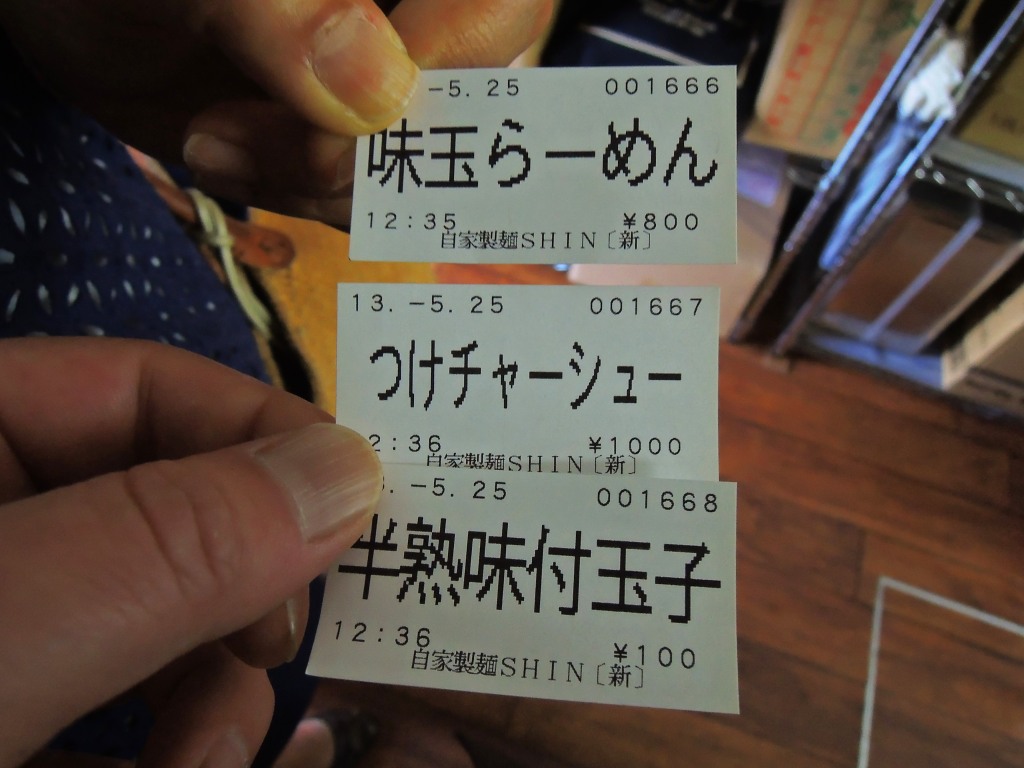 -5.25 001666
味玉らーめん
12:35 ¥800
自家製麺SHIN〔新〕
13.-5.25 001667
つけチャーシュー
2:36 ¥1000
自家製麺SHIN〔新〕
.-5.25 001668
半熟味付玉子
12:36 ¥100
自家製麺SHIN〔新〕